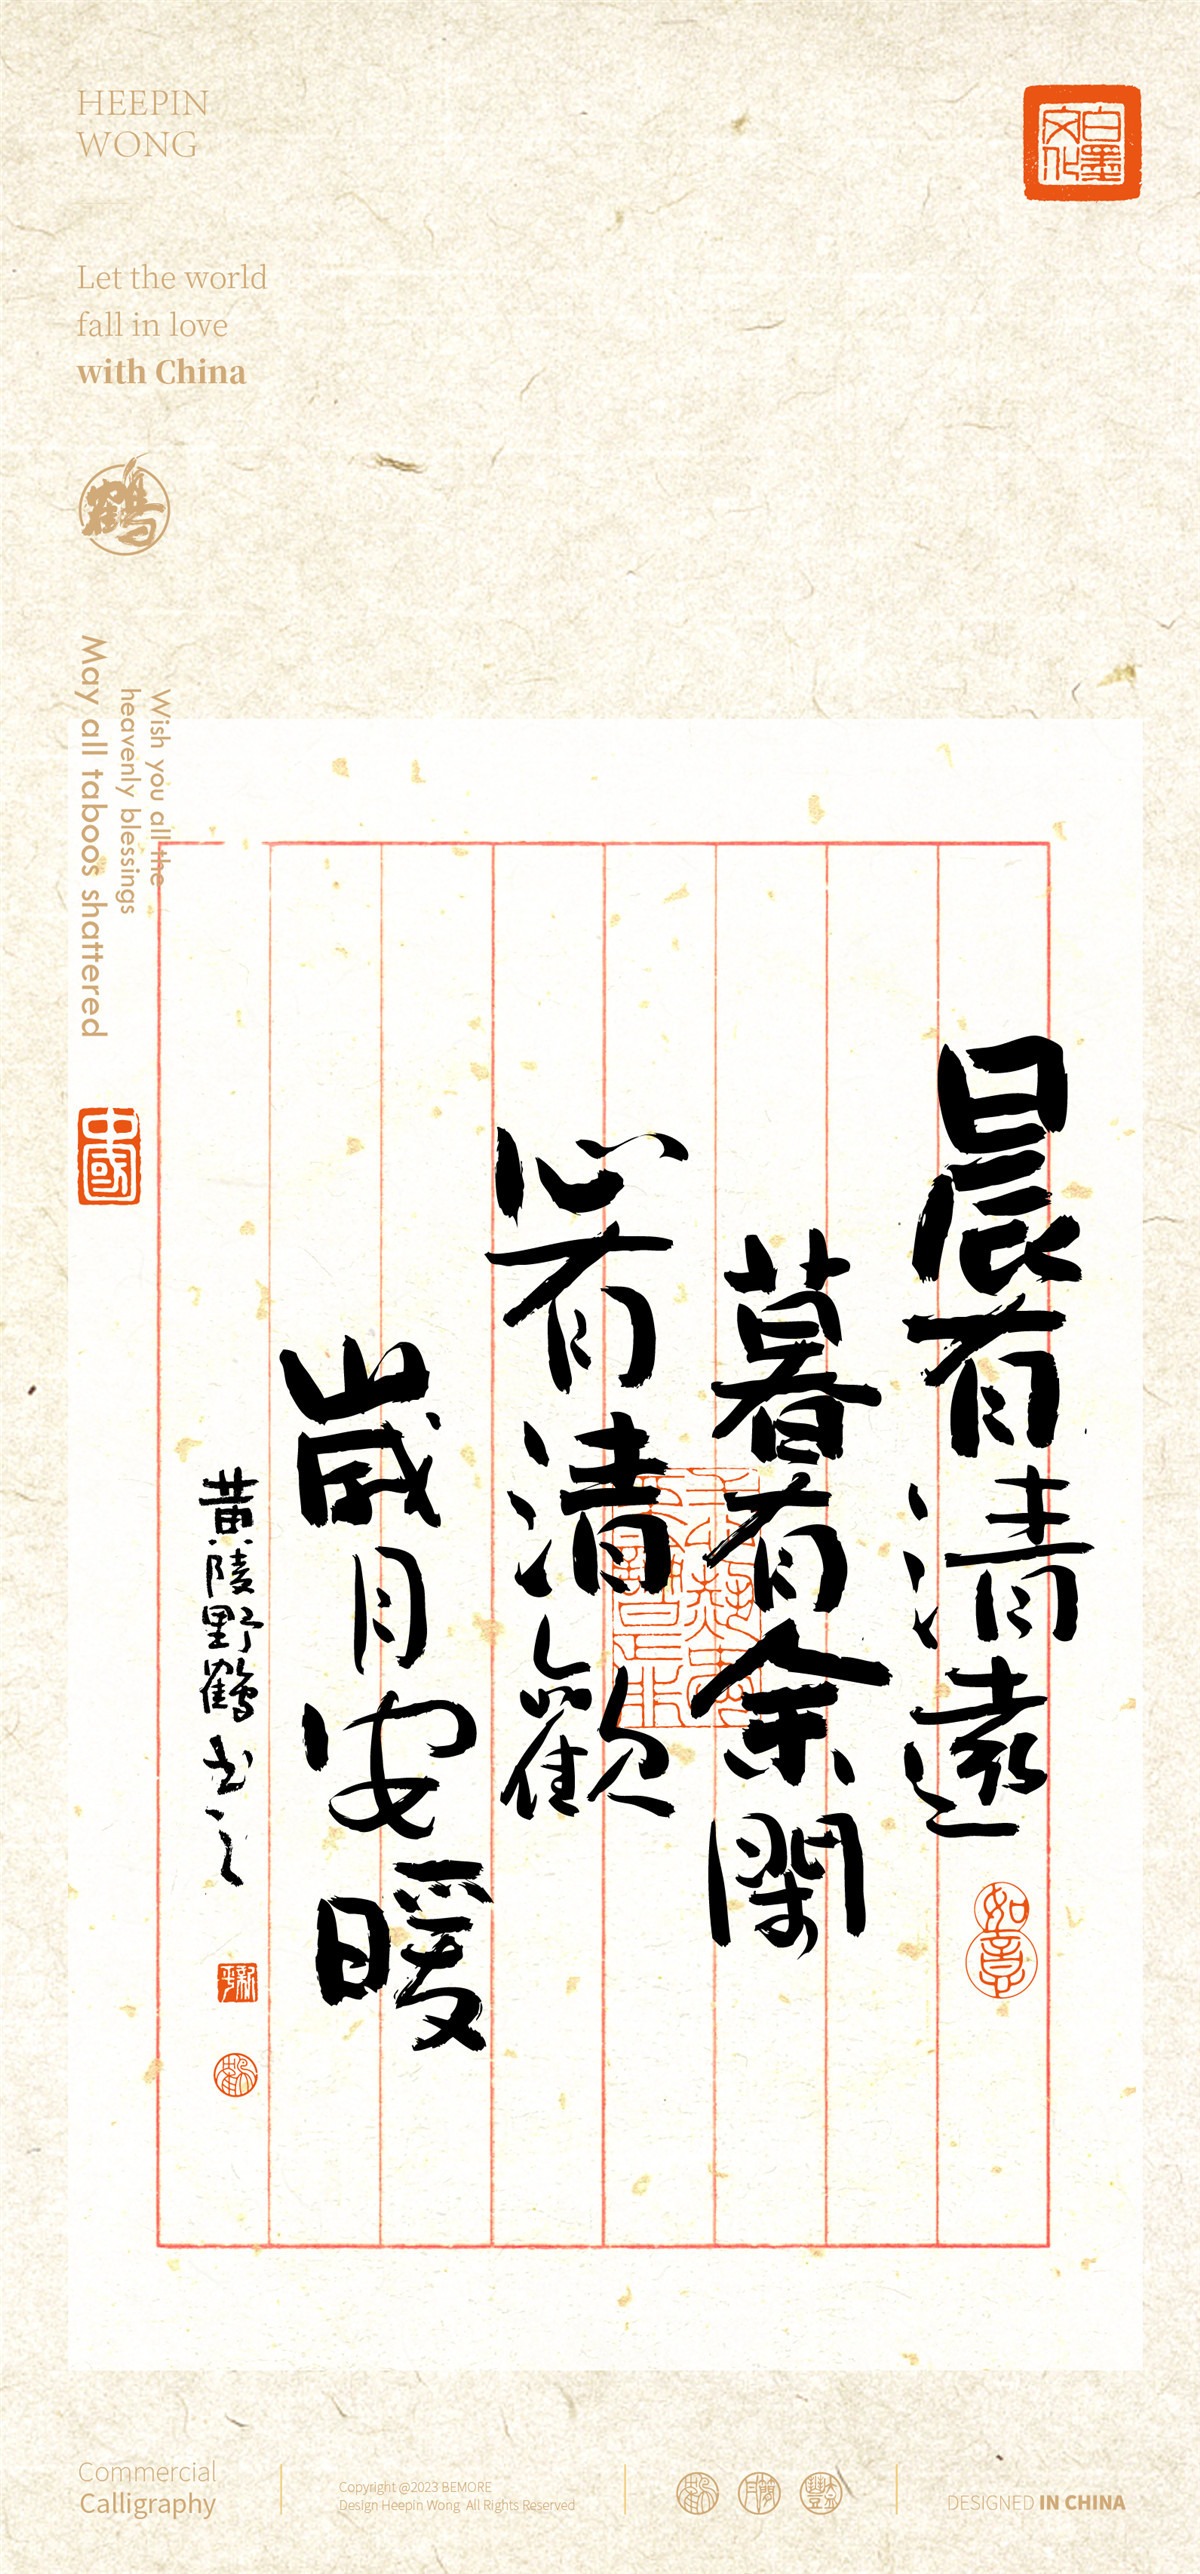 HEEPIN
WONG
白墨
文化
Let the world
fall in love
with China
鶴
Wish you all the
heavenly blessings
May all taboos shattered
中國
晨有清遠
暮有余閑
心有清歡
歲月安暖
黄陵野鶴书之
如意
Commercial
Calligraphy
Copyright @2023 BEMORE
Design Heepin Wong All Rights Reserved
DESIGNED IN CHINA